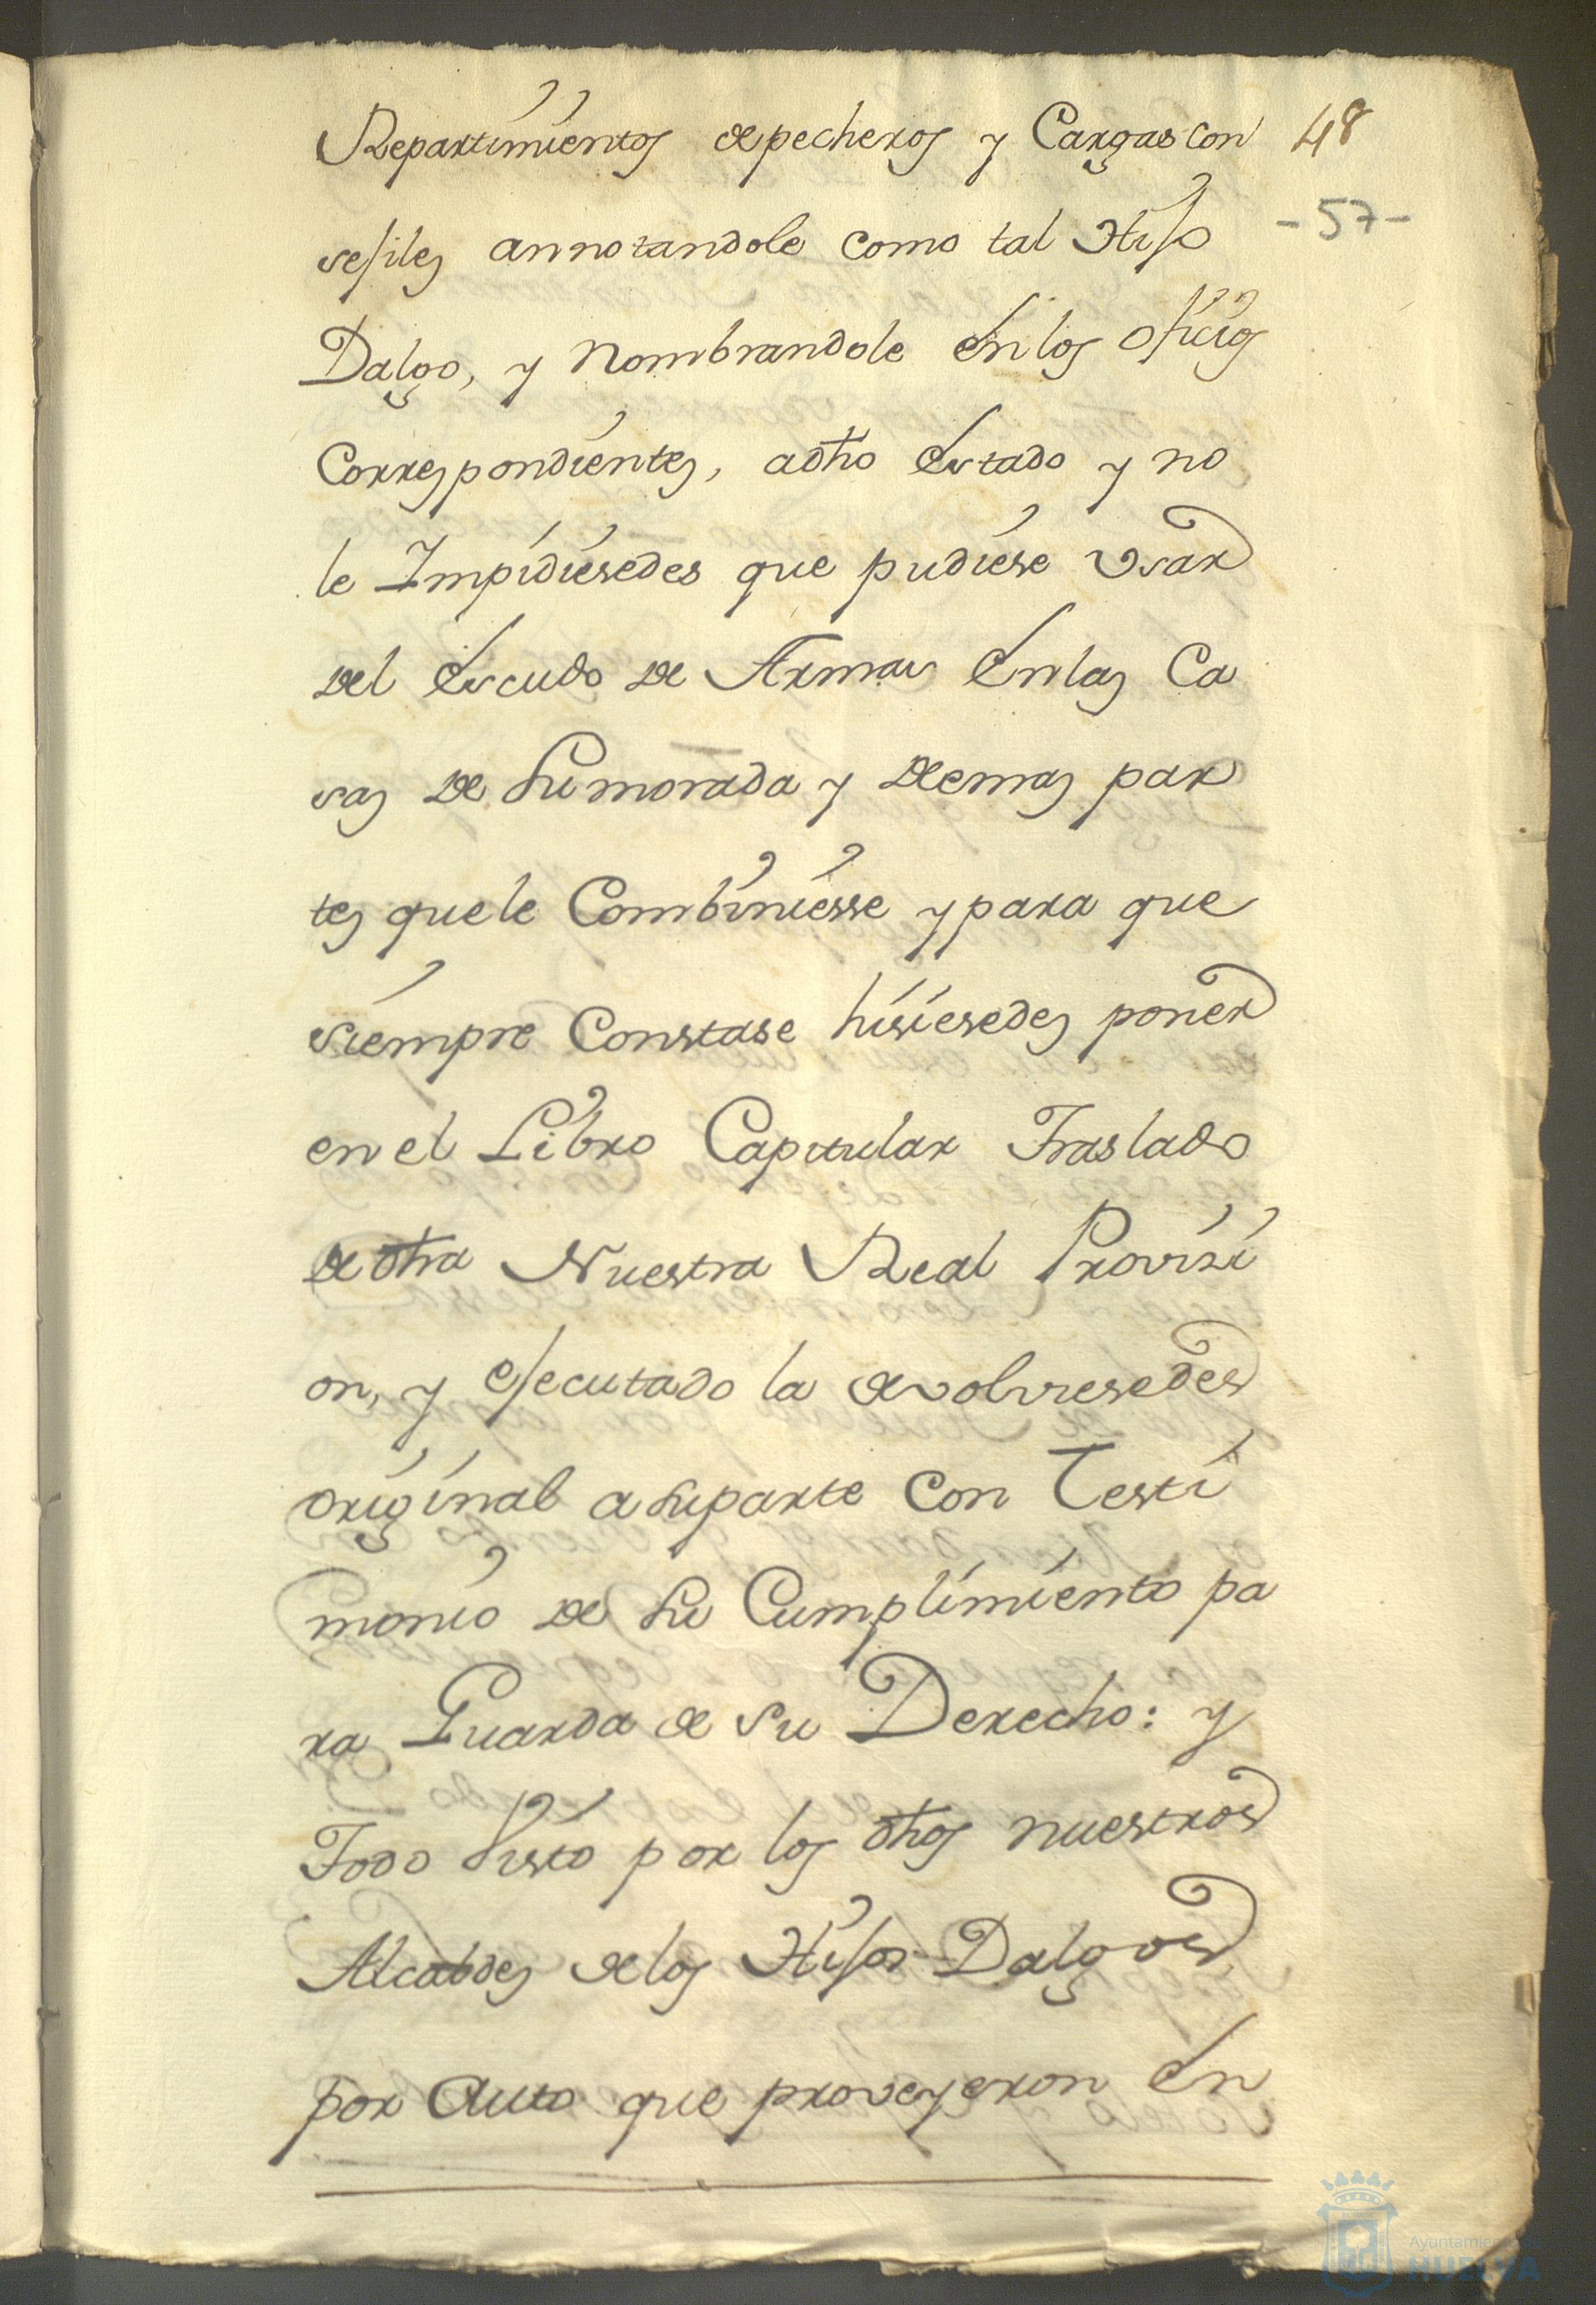 Repartimientos de pecheros y Cargas con 48
-57-
sejiles annotandole como tal Hijo
Dalgo, y Nombrandole En los oficios
Correspondientes, a dho Estado y no
le Impidiesedes que pudiese Vsar
del Escudo de Armas En las Ca
sas de Su morada y demas par
tes que le Combiniesse y para que
siempre Constase hisiesedes poner
en el Libro Capitular Traslado
de dha Nuestra Real Provisi
on, y ejecutado la devolviesedes
original a su parte con Testi
monio de Su Cumplimiento pa
ra Guarda de su Derecho: y
Todo Visto por los dhos nuestros
Alcaldes de los Hijos-Dalgos
por Auto que proveyeron En
Ayuntamiento de
HUELVA